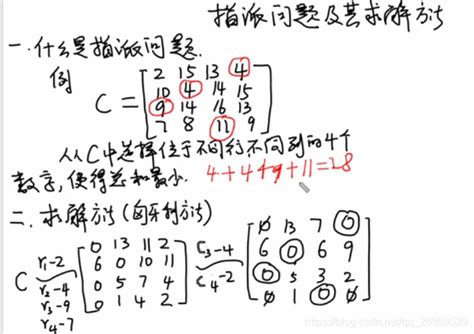 指派问题及其求解方法
一.什么是指派问题.
例
C = [2 15 13 4
10 4 14 15
9 14 16 13
7 8 11 9]
从C中选择位于不同行不同列的4个
数字,使得总和最小. 4+4+9+11=28
二.求解方法(匈牙利方法)
C r₁-2 r₂-4 r₃-9 r₄-7 [0 13 11 2
6 0 10 11
0 5 7 4
0 1 4 2] c₃-4 c₄-2 [0 13 7 0
6 0 6 9
0 5 3 2
0 1 0 0]
https://blog.csdn.net/qq_26959529